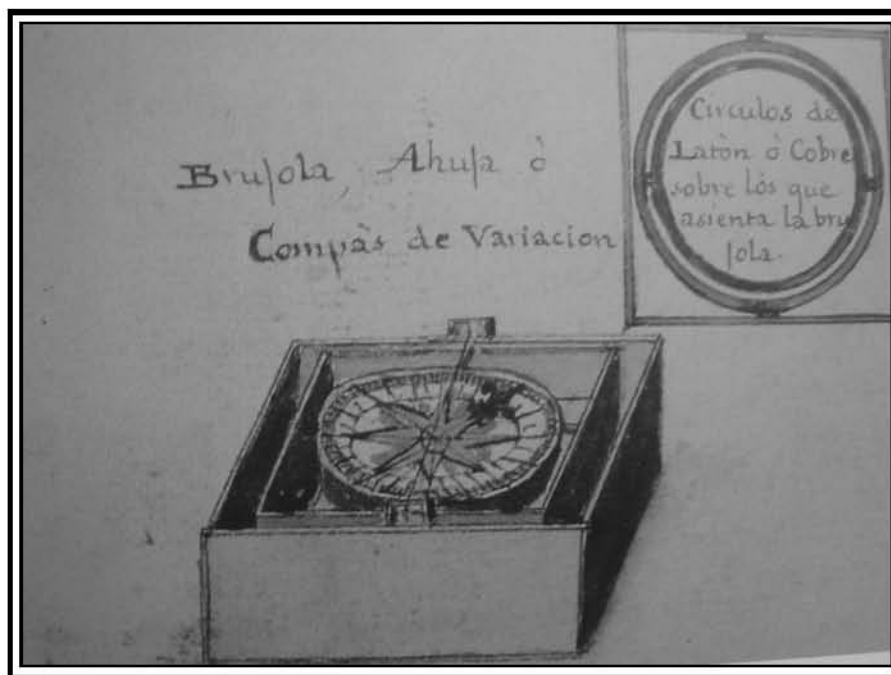 Bruſola, Ahuſa ò
Compàs de Variacion
Circulos de
Latòn ò Cobre
sobre lòs que
asienta la bru
ſola.